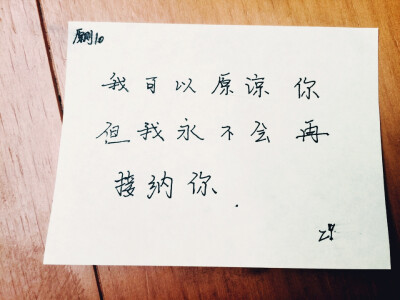 原则10
我可以原谅你
但我永不会再
接纳你.